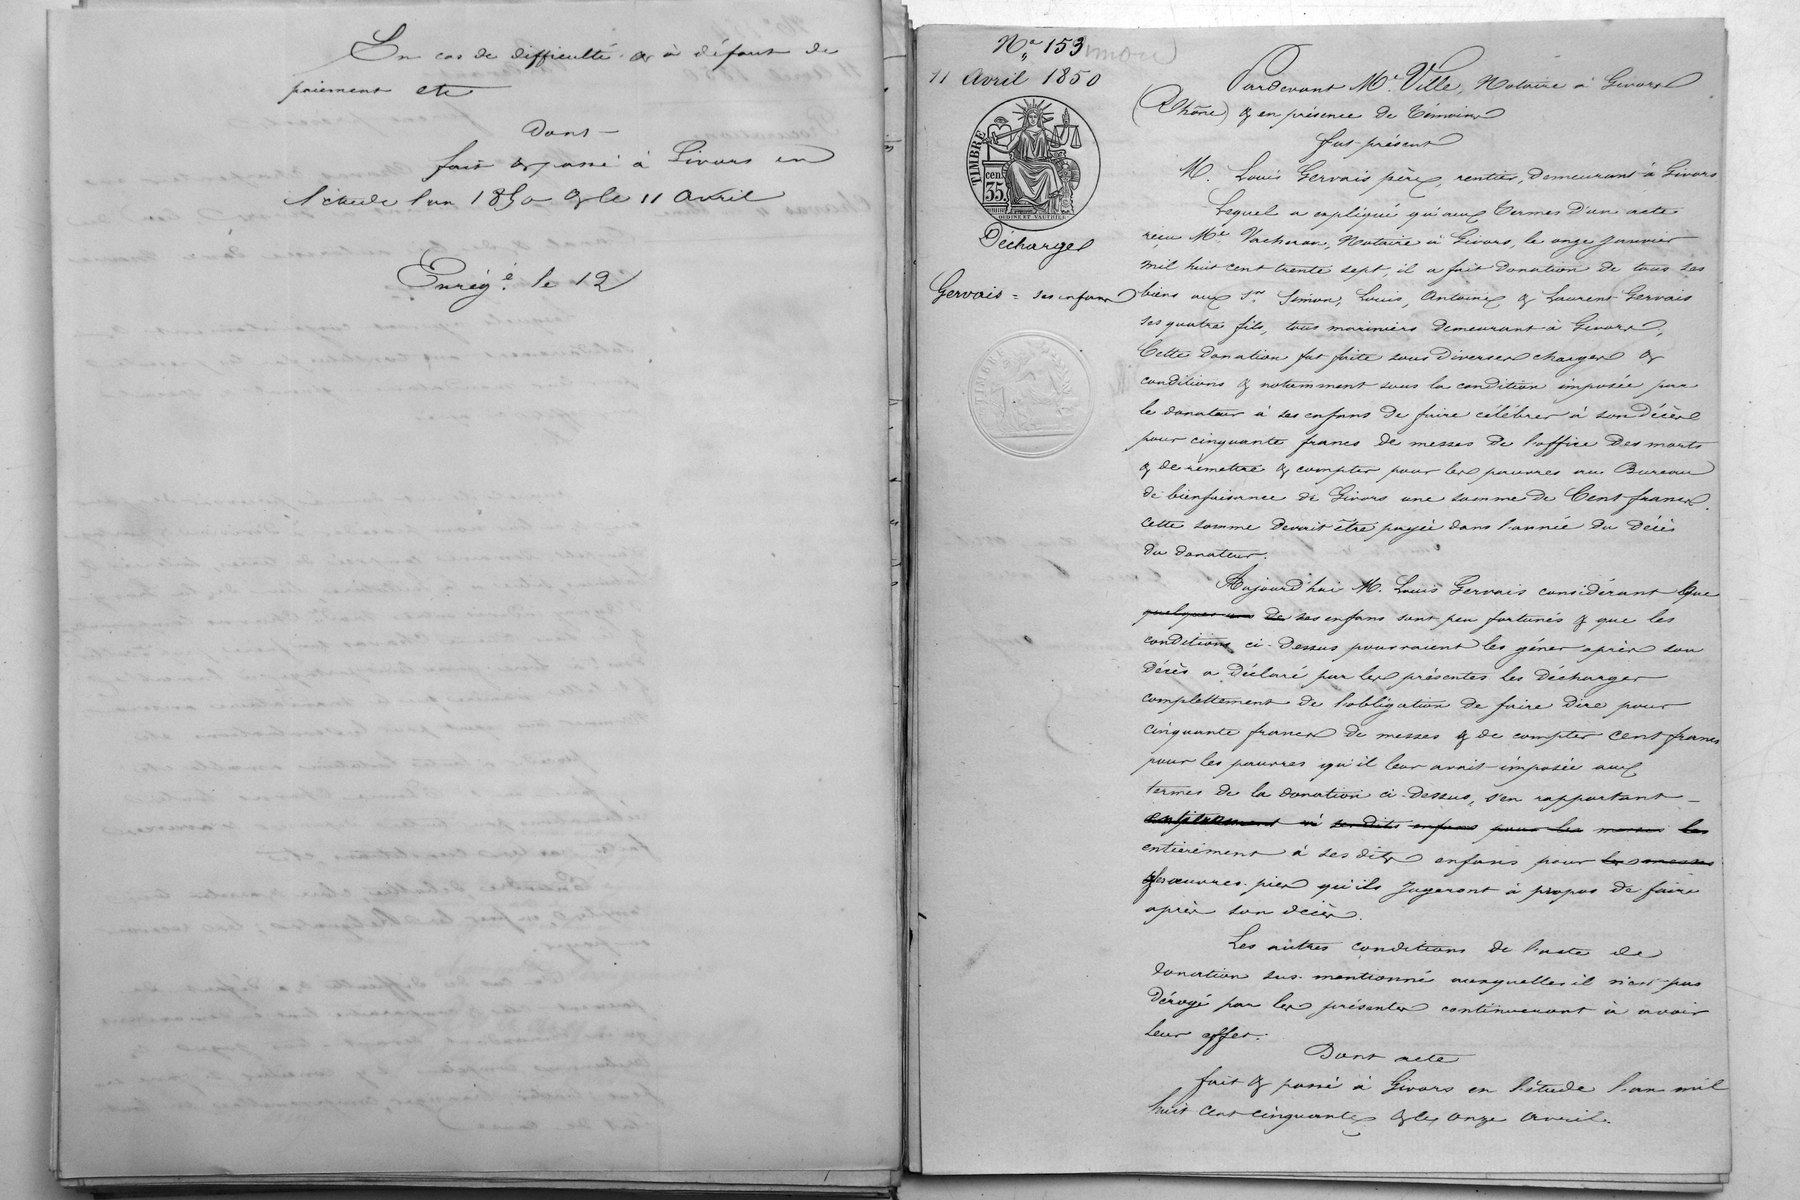 En cas de difficulté & à défaut de
paiement etc
Dont
fait & passé à Givors en
l'étude l'an 1850 & le 11 avril
Enreg.é le 12
N.o 153
11 Avril 1850
TIMBRE
cen.
35.
OUDINE ET VAUTHIER
Décharge
Gervais = ses enfans
TIMBRE
Pardevant M.e Ville, Notaire à Givors
(Rhône) & en présence de témoins
fut présent
M. Louis Gervais père, rentier, demeurant à Givors
Lequel a expliqué qu'aux termes d'un acte
reçu M.e Vacheron, Notaire à Givors, le onze Janvier
mil huit cent trente sept, il a fait donation de tous ses
biens aux S.rs Simon, Louis, Antoine, & Laurent Gervais
ses quatre fils, tous mariniers demeurant à Givors,
Cette donation fut faite sous diverses charges &
conditions & notamment sous la condition imposée par
le donateur à ses enfans de faire célébrer à son décès
pour cinquante francs de messes de l'office des morts
& de remettre & compter pour les pauvres au Bureau
de bienfaisance de Givors une somme de Cent francs.
cette somme devait être payée dans l'année du décès
du donateur.
Aujourd'hui M. Louis Gervais considérant que
quelques uns de ses enfans sont peu fortunés & que les
conditions ci-dessus pourraient les gêner après son
décès a déclaré par les présentes les décharger
complettement de l'obligation de faire dire pour
cinquante francs de messes & de compter cent francs
pour les pauvres qu'il leur avait imposée aux
termes de la donation ci-dessus, s'en rapportant
entièrement à ses dits enfans pour les messes les
entièrement à ses dits enfans pour les messes
& les œuvres pies qu'ils jugeront à propos de faire
après son décès.
Les autres conditions de l'acte de
donation sus-mentionné auxquelles il n'est pas
dérogé par les présentes continueront à avoir
leur effet.
Dont acte
fait & passé à Givors en l'étude l'an mil
huit cent cinquante & le onze avril.